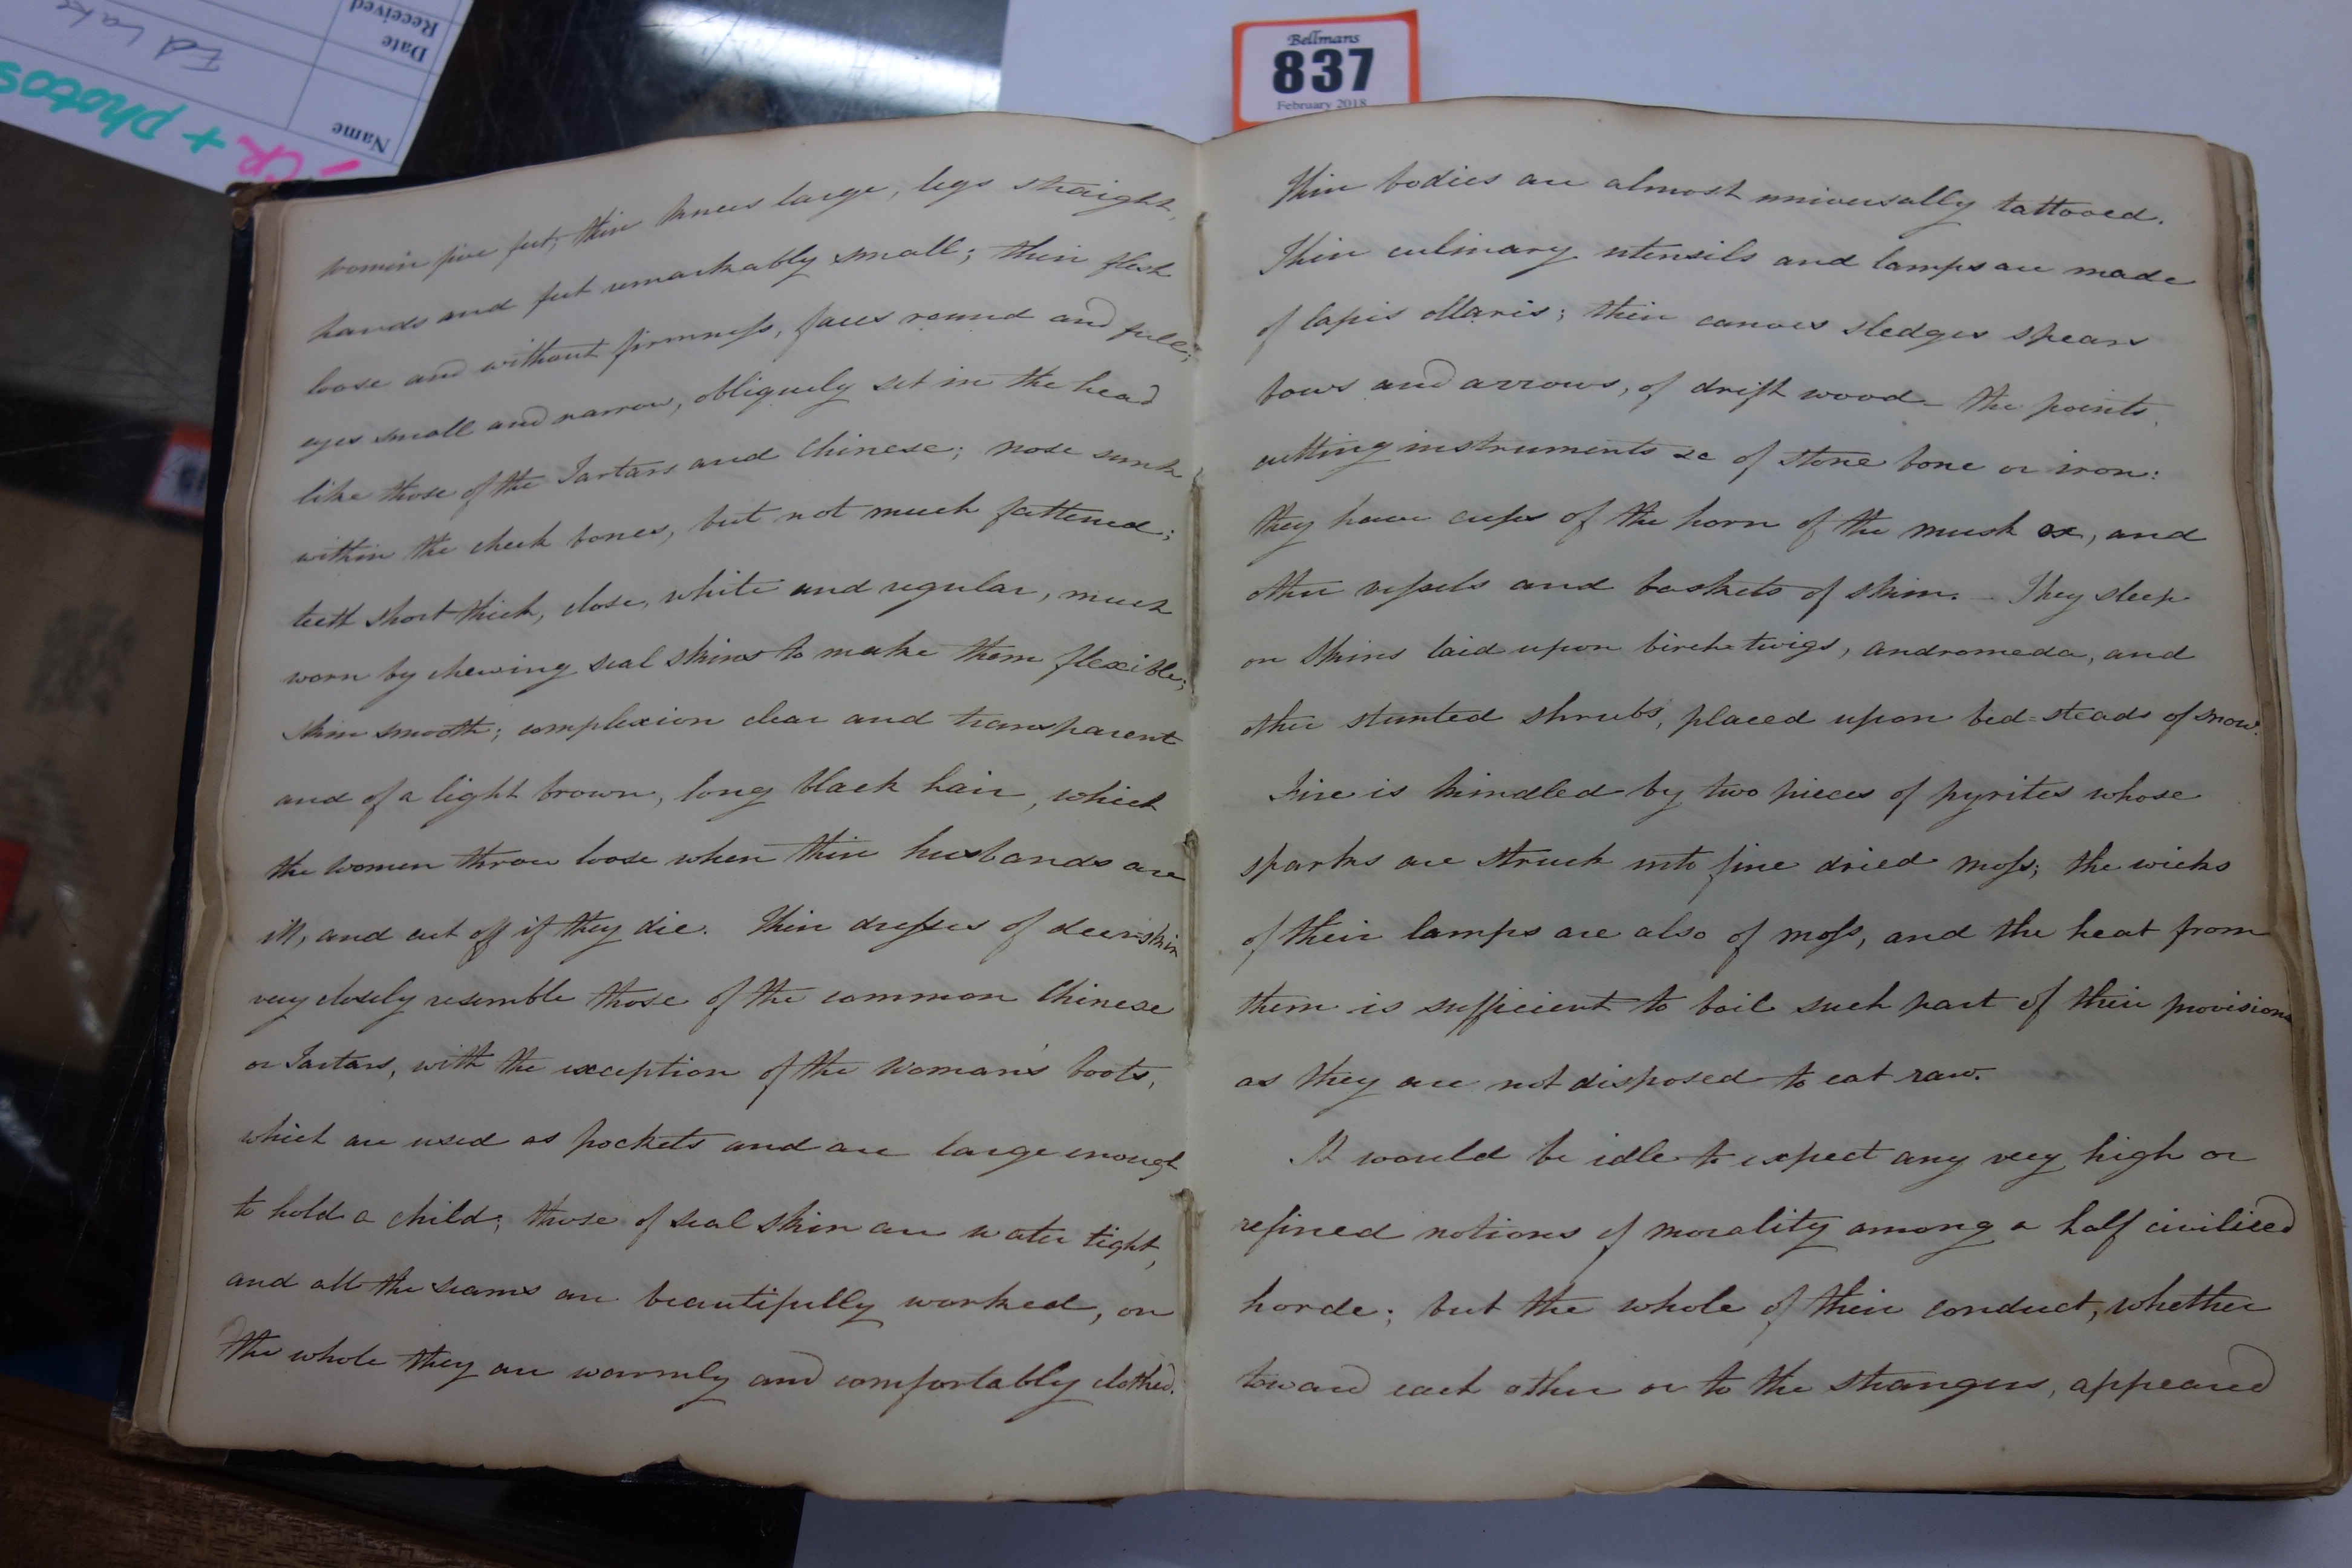 Name
Date
Received
Ed Lake
- CR + photos
Bellmans
837
February 2018
women five feet, their knees large, legs straight,
hands and feet remarkably small; their flesh
loose and without firmness, faces round and full;
eyes small and narrow, obliquely set in the head
like those of the Tartars and Chinese; nose sunk
within the cheek bones, but not much fattened;
teeth short thick, close, white and regular, much
worn by chewing seal skins to make them flexible;
skin smooth; complexion clear and transparent
and of a light brown, long black hair, which
the women throw loose when their husbands are
ill, and cut off if they die. Their dresses of deer-skin
very closely resemble those of the common Chinese
or Tartars, with the exception of the Woman's boots,
which are used as pockets and are large enough
to hold a child; those of seal skin are water tight,
and all the seams are beautifully worked, on
the whole they are warmly and comfortably clothed.
Their bodies are almost universally tattooed.
Their culinary utensils and lamps are made
of lapis ollaris; their canoes sledges spears
bows and arrows, of drift wood - the points,
cutting instruments &c of stone bone or iron:
they have cups of the horn of the musk ox, and
other vessels and baskets of skin. - They sleep
on skins laid upon birch twigs, andromeda, and
other stunted shrubs, placed upon bed=steads of snow.
Fire is kindled by two pieces of pyrites whose
sparks are struck into fine dried moss; the wicks
of their lamps are also of moss, and the heat from
them is sufficient to boil such part of their provisions
as they are not disposed to eat raw.
It would be idle to expect any very high or
refined notions of morality among a half civilized
horde; but the whole of their conduct, whether
toward each other or to the strangers, appeared